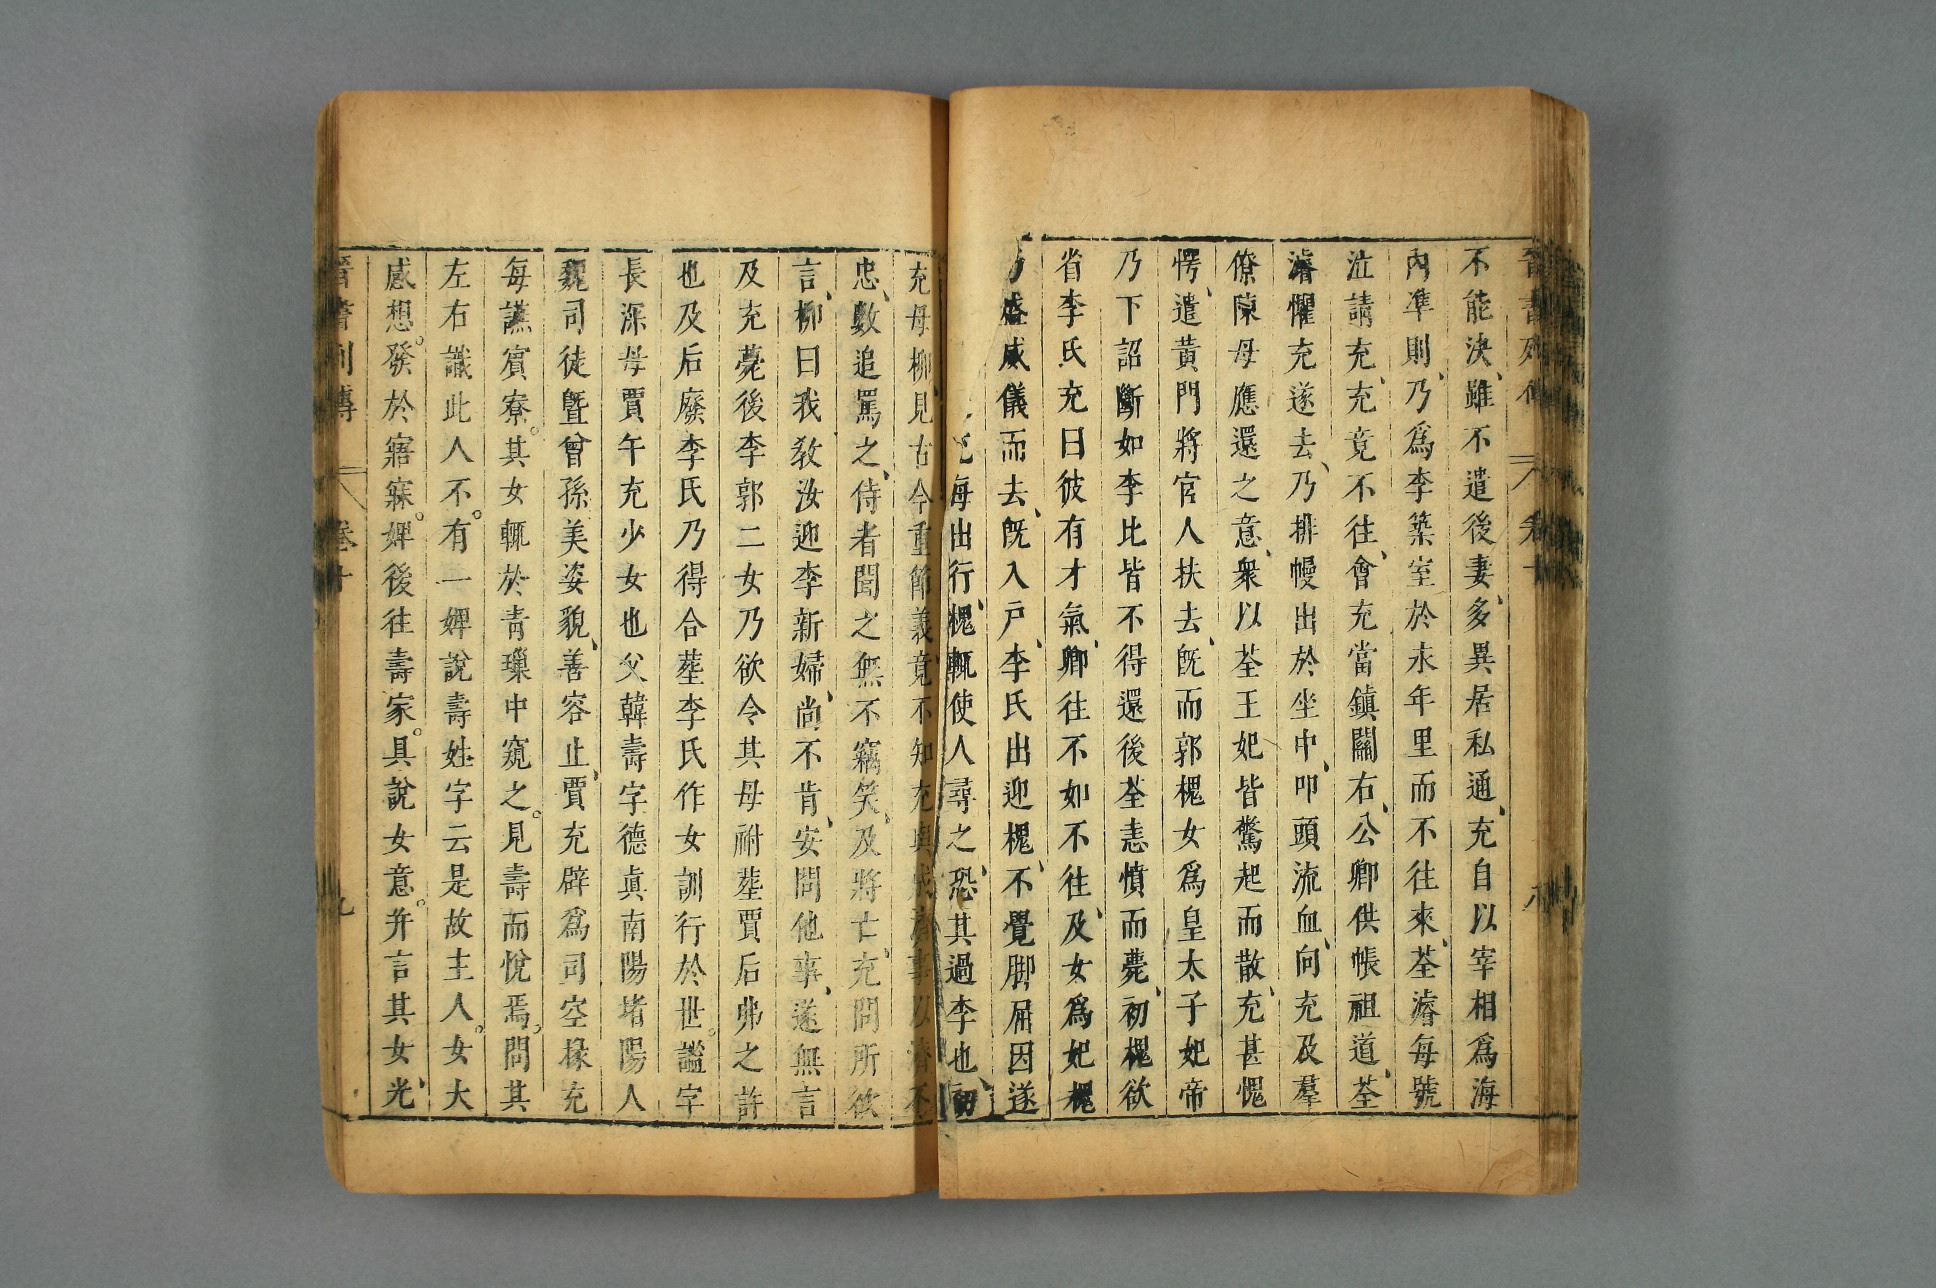 晉書列傳 卷十 八
不能決雖不遣後妻多異居私通充自以宰相爲海
內準則乃爲李築室於永年里而不往來荃濬每號
泣請充充竟不往會充當鎮關右公卿供帳祖道荃
濬懼充遂去乃排幔出於坐中叩頭流血向充及羣
僚陳母應還之意衆以荃王妃皆驚起而散充甚愧
愕遣黃門將宮人扶去旣而郭槐女爲皇太子妃帝
乃下詔斷如李比皆不得還後荃恚憤而薨初槐欲
省李氏充曰彼有才氣卿往不如不往及女爲妃槐
乃盛威儀而去旣入戶李氏出迎槐不覺脚屈因遂
充每出行槐輒使人尋之恐其過李也初
充母柳見古今重節義竟不知充與成濟事以濟不
忠數追罵之侍者聞之無不竊笑及將亡充問所欲
言柳曰我敎汝迎李新婦尚不肯安問他事遂無言
及充薨後李郭二女乃欲令其母祔葬賈后弗之許
也及后廢李氏乃得合葬李氏作女訓行於世謐字
長深母賈午充少女也父韓壽字德眞南陽堵陽人
魏司徒曁曾孫美姿貌善容止賈充辟爲司空掾充
每讌賓寮其女輒於靑璅中窺之見壽而悅焉問其
左右識此人不有一婢說壽姓字云是故主人女大
感想發於寤寐婢後往壽家具說女意并言其女光
晉書列傳 卷十 九